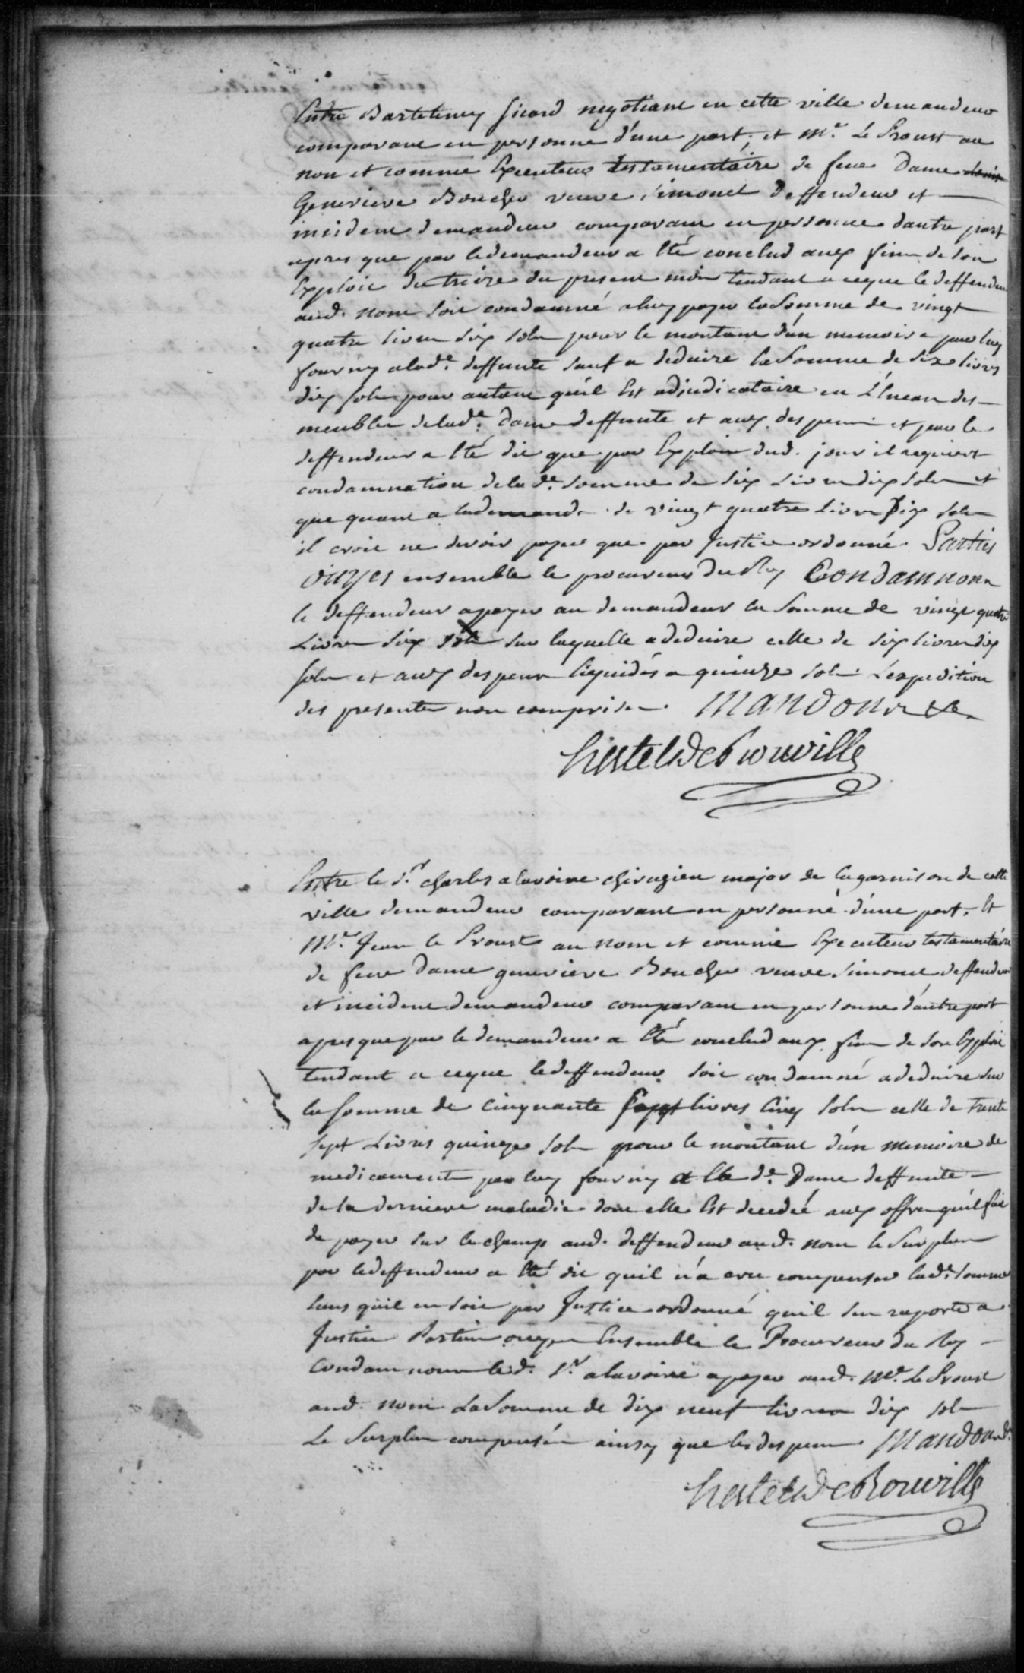 Entre Bartelemy Sicard negotiant en cette ville demandeur
comparant en personne d'une part, et Mr. Le Proust au
nom et comme Executeur testamentaire de feue Dame
Genevieve Boucher veuve Simonet Deffendeur et
incident demandeur comparant en personne dautre part
apres que par le demandeur a Eté conclud aux fins de son
Exploit du treize du present mois tendant a ceque le deffendeur
aud. nom soit condamné a luy payer la Somme de vingt
quatre livres six sols pour le montant d'un memoire par luy
fourny a lad.e deffunte sauf a deduire la Somme de six livres
dix sols pour autant qu'il Est adjudicataire en L'Encan des
meubles delad.e Dame deffunte et aux despens et par le
deffendeur a Eté dit que par Exploit dud. jour il requiert
condamnation delad.e somme de six Livres dix sols et
que quant a lademande de vingt quatre Livres Six sols
il croit ne devoir payer que par Justice ordonné. Parties
Ouyes ensemble le procureur Du Roy Condamnons
le deffendeur apayer au demandeur la Somme de vingt quatre
Livres six sols sur laquelle a deduire celle de six livres dix
sols et aux despens liquidés a quinze sols L'expedition
des presentes non comprises. Mandons &a
hertel De Rouville
Entre le Sr. charles alavoine chirugien major de la garnison de cette
ville demandeur comparant en personne d'une part. Et
Mr. Jean le Proust au nom et comme Executeur testamentaire
de feue Dame genevieve Boucher veuve Simonet deffendeur
et incident demandeur comparant en personne d'autre part
apres que par le demandeur a Eté conclud aux fins de son Exploit
tendant a ceque le deffendeur soit condamné a deduire sur
la somme de cinquante Sept livres Cinq sols celle de trente
sept Livres quinze sols pour le montant d'un memoire de
medicaments par luy fourny a lad.e Dame deffunte
de la derniere maladie dont elle Est decedée aux offres qu'il fait
de payer sur le champ aud. deffendeur aud. nom le Surplus
par le deffendeur a Eté dit quil n'a cru compenser lad.e somme
sans qu'il en soit par Justice ordonné quil s'en raporte a
Justice Parties ouyes Ensemble le Procureur du Roy
Condamnons led. Sr. alavoine apayer aud. Mr. Le Proust
aud. nom La Somme de dix neuf livres dix sols
Le Surplus compensé ainsy que les despens Mandons
hertel De Rouville